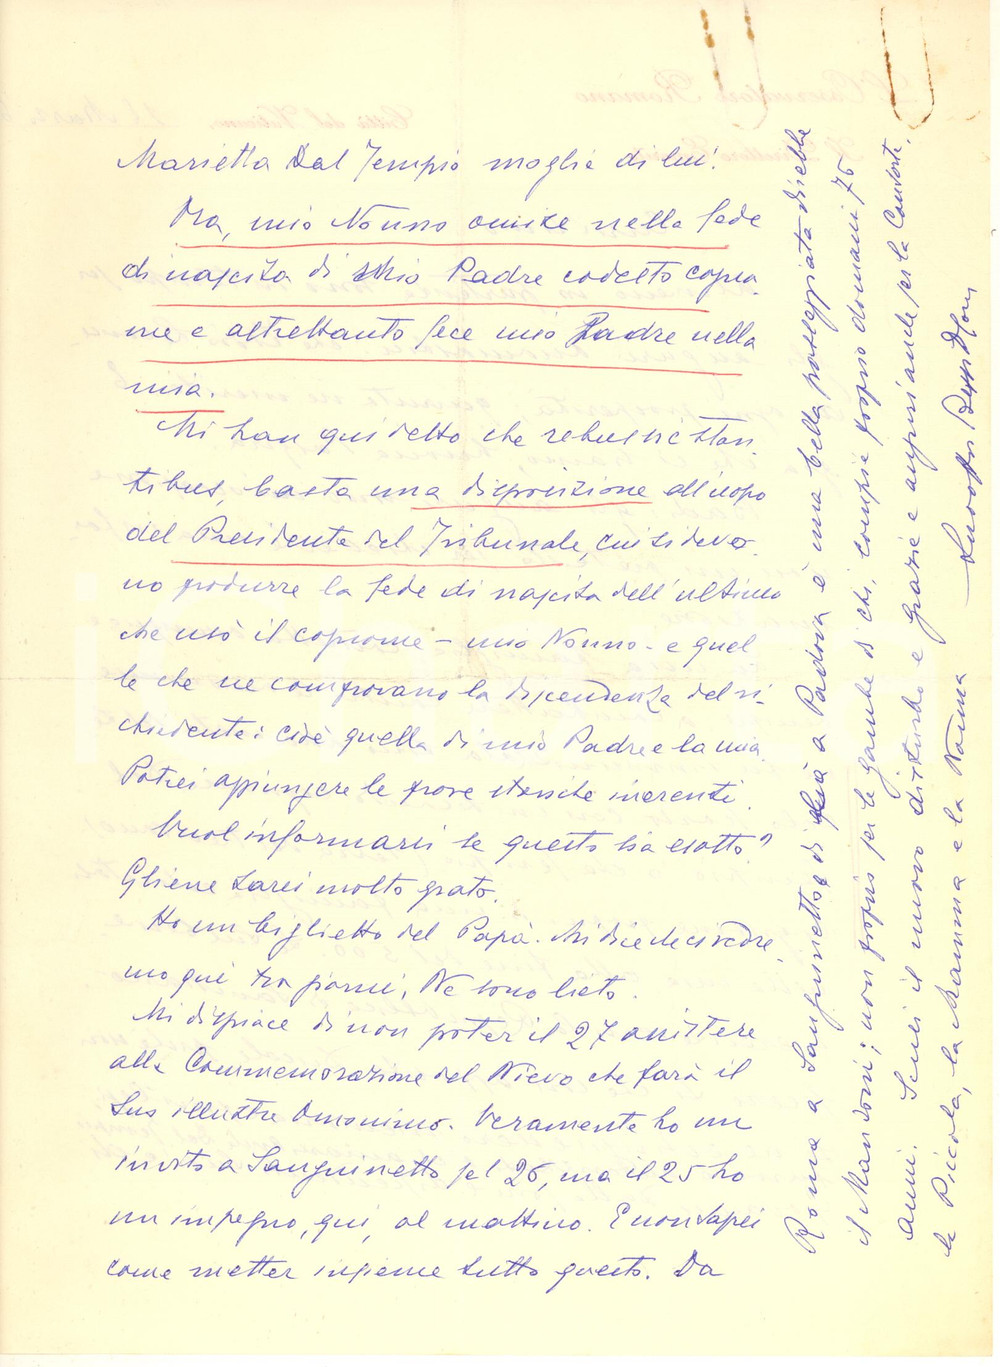 Marietta Dal Tempio moglie di lui.
Ora, mio Nonno omise nella fede
di nascita di Mio Padre codesto cogno-
me e altrettanto fece mio Padre nella
mia.
Mi han qui detto che rebus sic stan-
tibus, basta una disposizione all'uopo
del Presidente del Tribunale, cui si devo-
no produrre la fede di nascita dell'ultimo
che usò il cognome - mio Nonno - e quel
le che ne comprovano la discendenza del ri-
chiedente: cioè quella di mio Padre e la mia.
Potrei aggiungere le prove storiche inerenti.
Vuol informarsi se questo sia esatto?
Gliene sarei molto grato.
Ho un biglietto del Papà. Mi dice che ci vedre-
mo qui tra giorni. Ne sono lieto.
Mi dispiace di non poter il 27 assistere
alla Commemorazione del Nievo che farà il
Suo illustre Omonimo. Veramente ho un
invito a Sanguinetto pel 26, ma il 25 ho
un impegno, qui, al mattino. E non saprei
come metter insieme tutto questo. Da
Roma a Sanguinetto e di là a Padova è una bella passeggiata direbbe
il Manzoni; non proprio per le gambe di chi, compie proprio domani 75
anni. Scusi il nuovo disturbo e grazie e auguri anche per la Consorte,
la Piccola, la Mamma e la Nonna